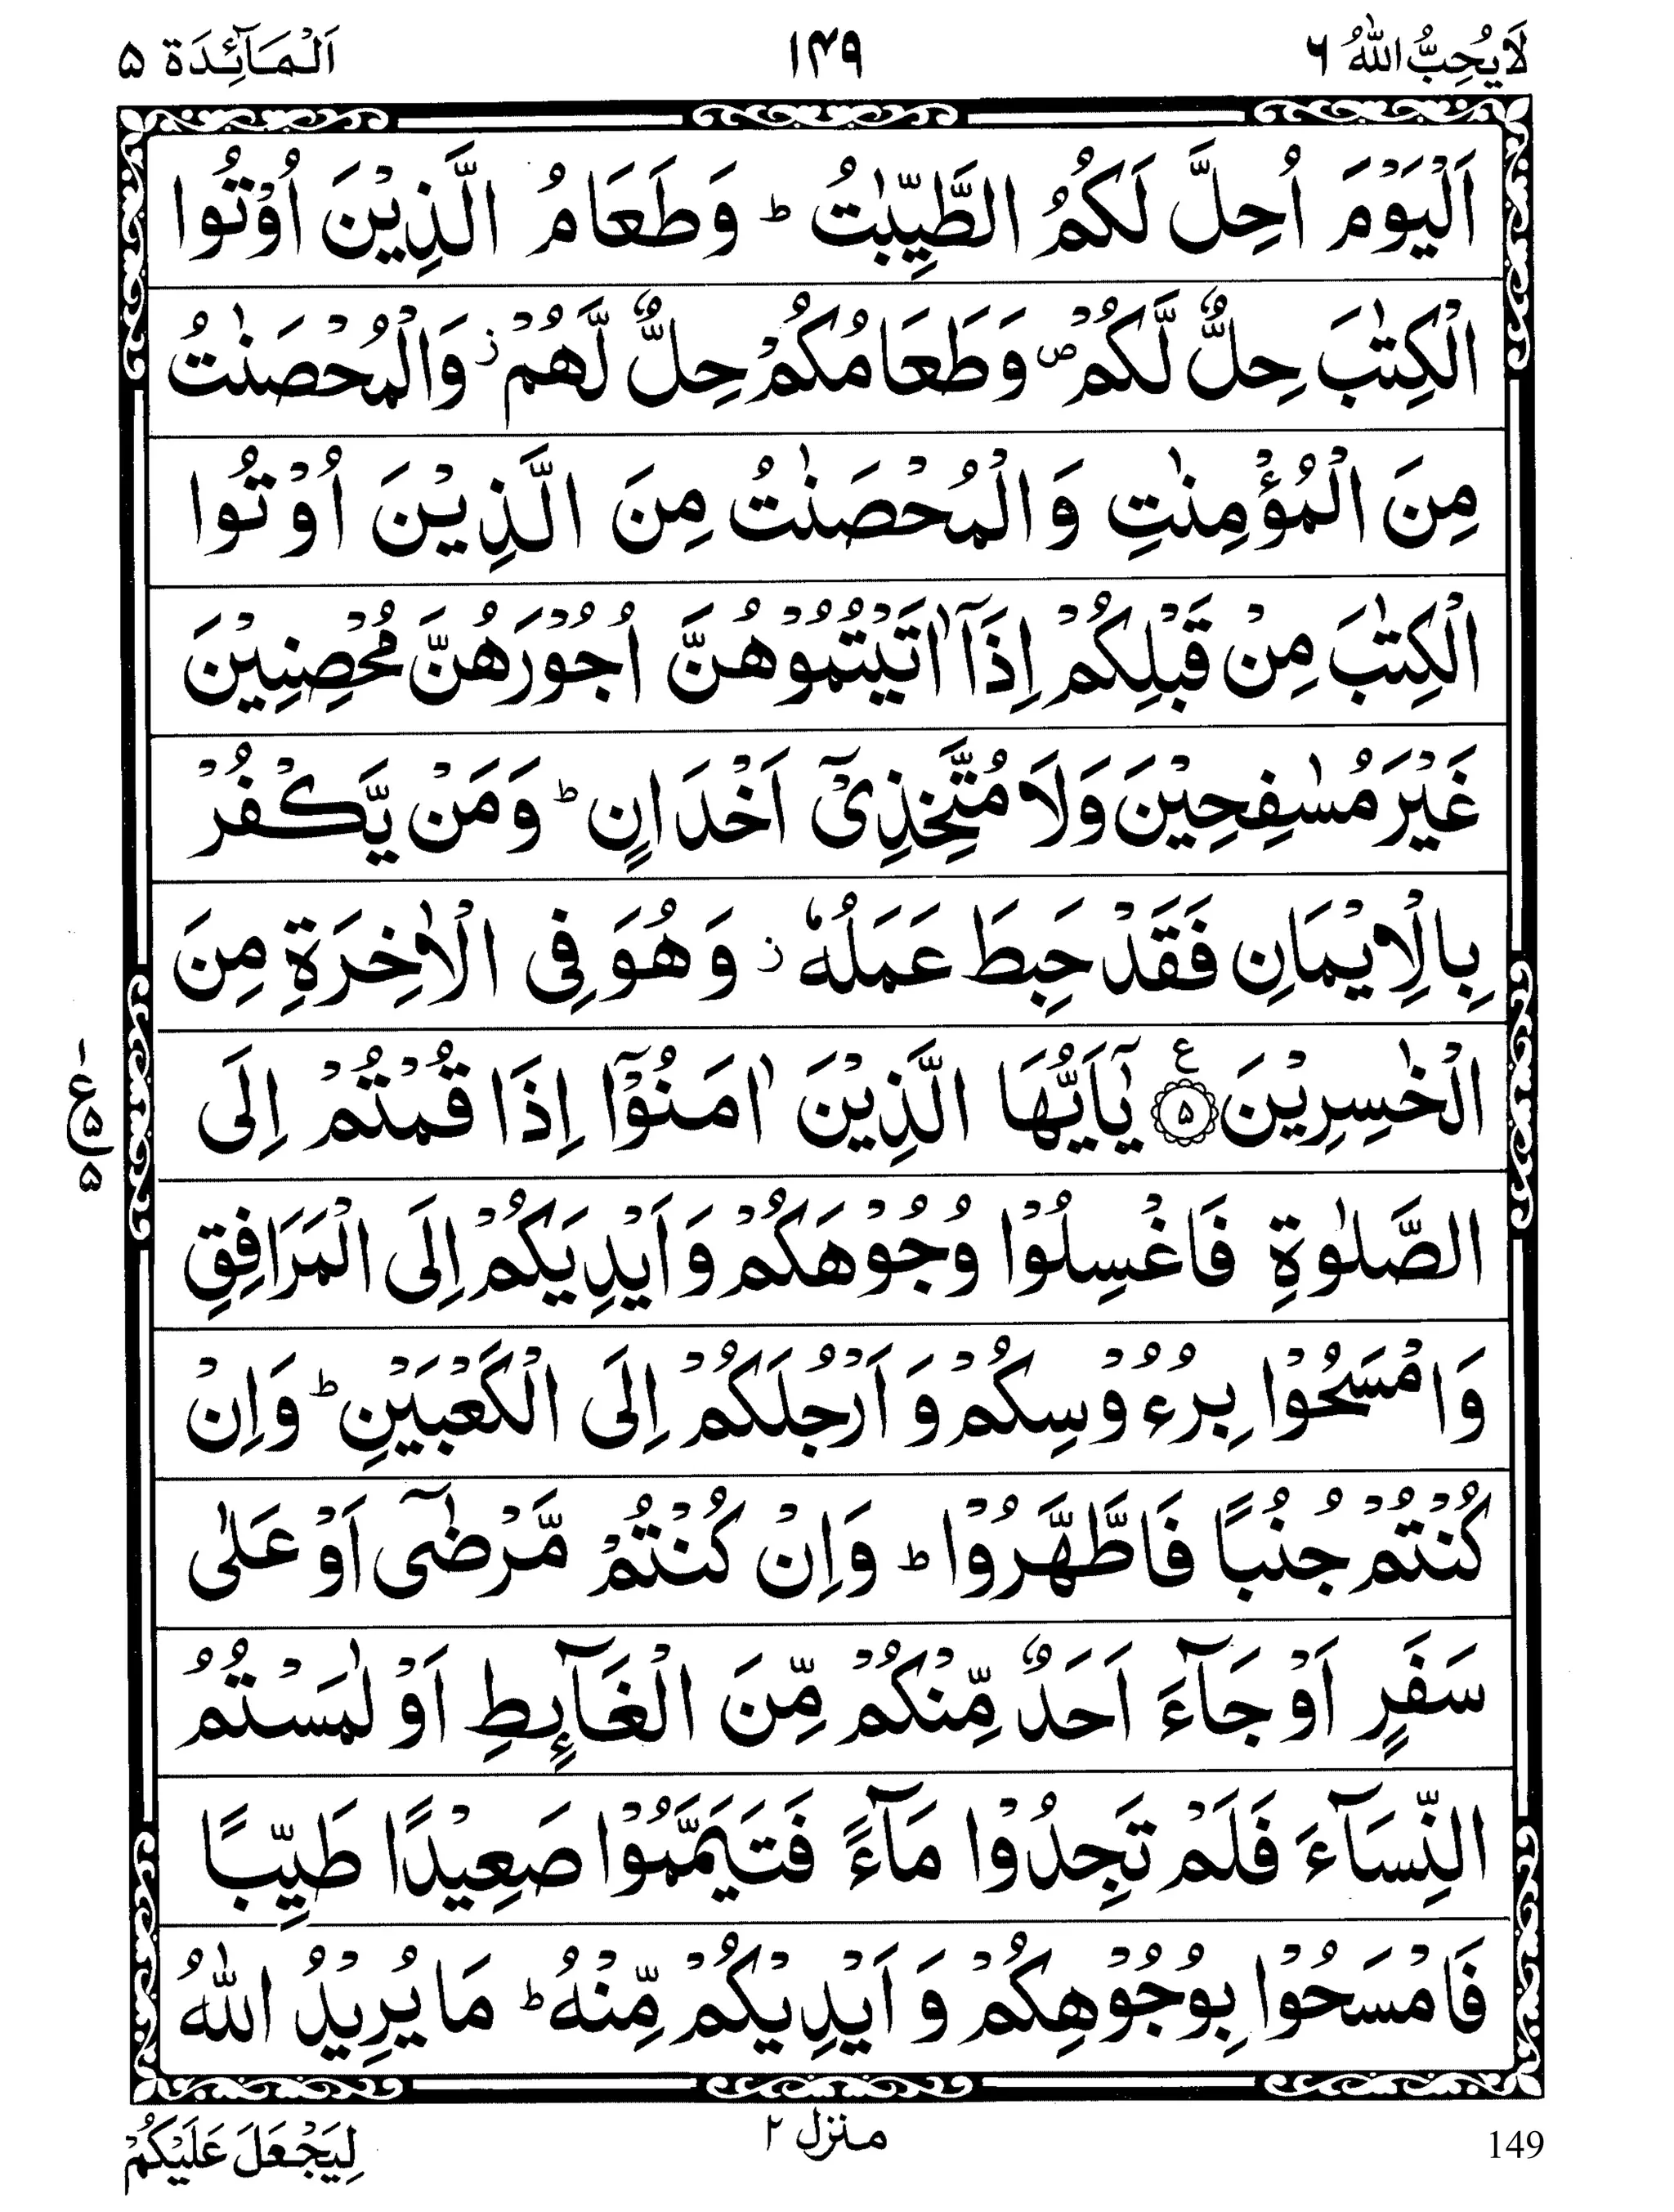 لَا يُحِبُّ اللّٰهُ ٦
١٤٩
اَلْمَآئِدَة ٥
اَلْيَوْمَ اُحِلَّ لَكُمُ الطَّيِّبٰتُ ؕ وَطَعَامُ الَّذِيْنَ اُوْتُوا
الْكِتٰبَ حِلٌّ لَّكُمْ ۪ وَطَعَامُكُمْ حِلٌّ لَّهُمْ ؗ وَالْمُحْصَنٰتُ
مِنَ الْمُؤْمِنٰتِ وَالْمُحْصَنٰتُ مِنَ الَّذِيْنَ اُوْتُوا
الْكِتٰبَ مِنْ قَبْلِكُمْ اِذَاۤ اٰتَيْتُمُوْهُنَّ اُجُوْرَهُنَّ مُحْصِنِيْنَ
غَيْرَ مُسٰفِحِيْنَ وَلَا مُتَّخِذِىْۤ اَخْدَانٍ ؕ وَمَنْ يَّكْفُرْ
بِالْاِيْمَانِ فَقَدْ حَبِطَ عَمَلُهٗ ؗ وَهُوَ فِى الْاٰخِرَةِ مِنَ
الْخٰسِرِيْنَ ۧ ٥ يٰۤاَيُّهَا الَّذِيْنَ اٰمَنُوْۤا اِذَا قُمْتُمْ اِلَى
١ ع ٥ ٥
الصَّلٰوةِ فَاغْسِلُوْا وُجُوْهَكُمْ وَاَيْدِيَكُمْ اِلَى الْمَرَافِقِ
وَامْسَحُوْا بِرُءُوْسِكُمْ وَاَرْجُلَكُمْ اِلَى الْكَعْبَيْنِ ؕ وَاِنْ
كُنْتُمْ جُنُبًا فَاطَّهَّرُوْا ؕ وَاِنْ كُنْتُمْ مَّرْضٰۤى اَوْ عَلٰى
سَفَرٍ اَوْ جَآءَ اَحَدٌ مِّنْكُمْ مِّنَ الْغَآىِٕطِ اَوْ لٰمَسْتُمُ
النِّسَآءَ فَلَمْ تَجِدُوْا مَآءً فَتَيَمَّمُوْا صَعِيْدًا طَيِّبًا
فَامْسَحُوْا بِوُجُوْهِكُمْ وَاَيْدِيْكُمْ مِّنْهُ ؕ مَا يُرِيْدُ اللّٰهُ
149
منزل ٢
لِيَجْعَلَ عَلَيْكُمْ